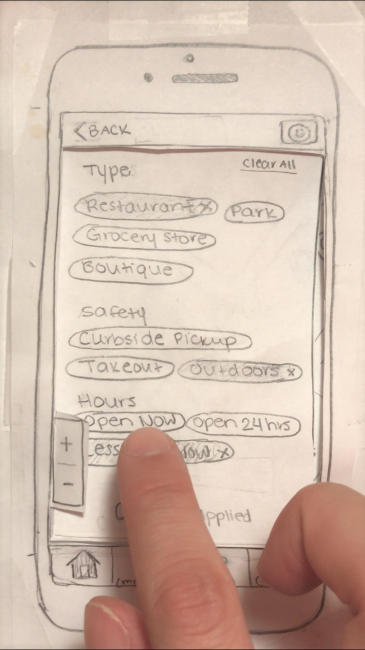 < BACK
Type
Clear All
Restaurant x
Park
Grocery Store
Boutique
Safety
Curbside Pickup
Takeout
Outdoors x
Hours
Open Now
Open 24hrs
+
-